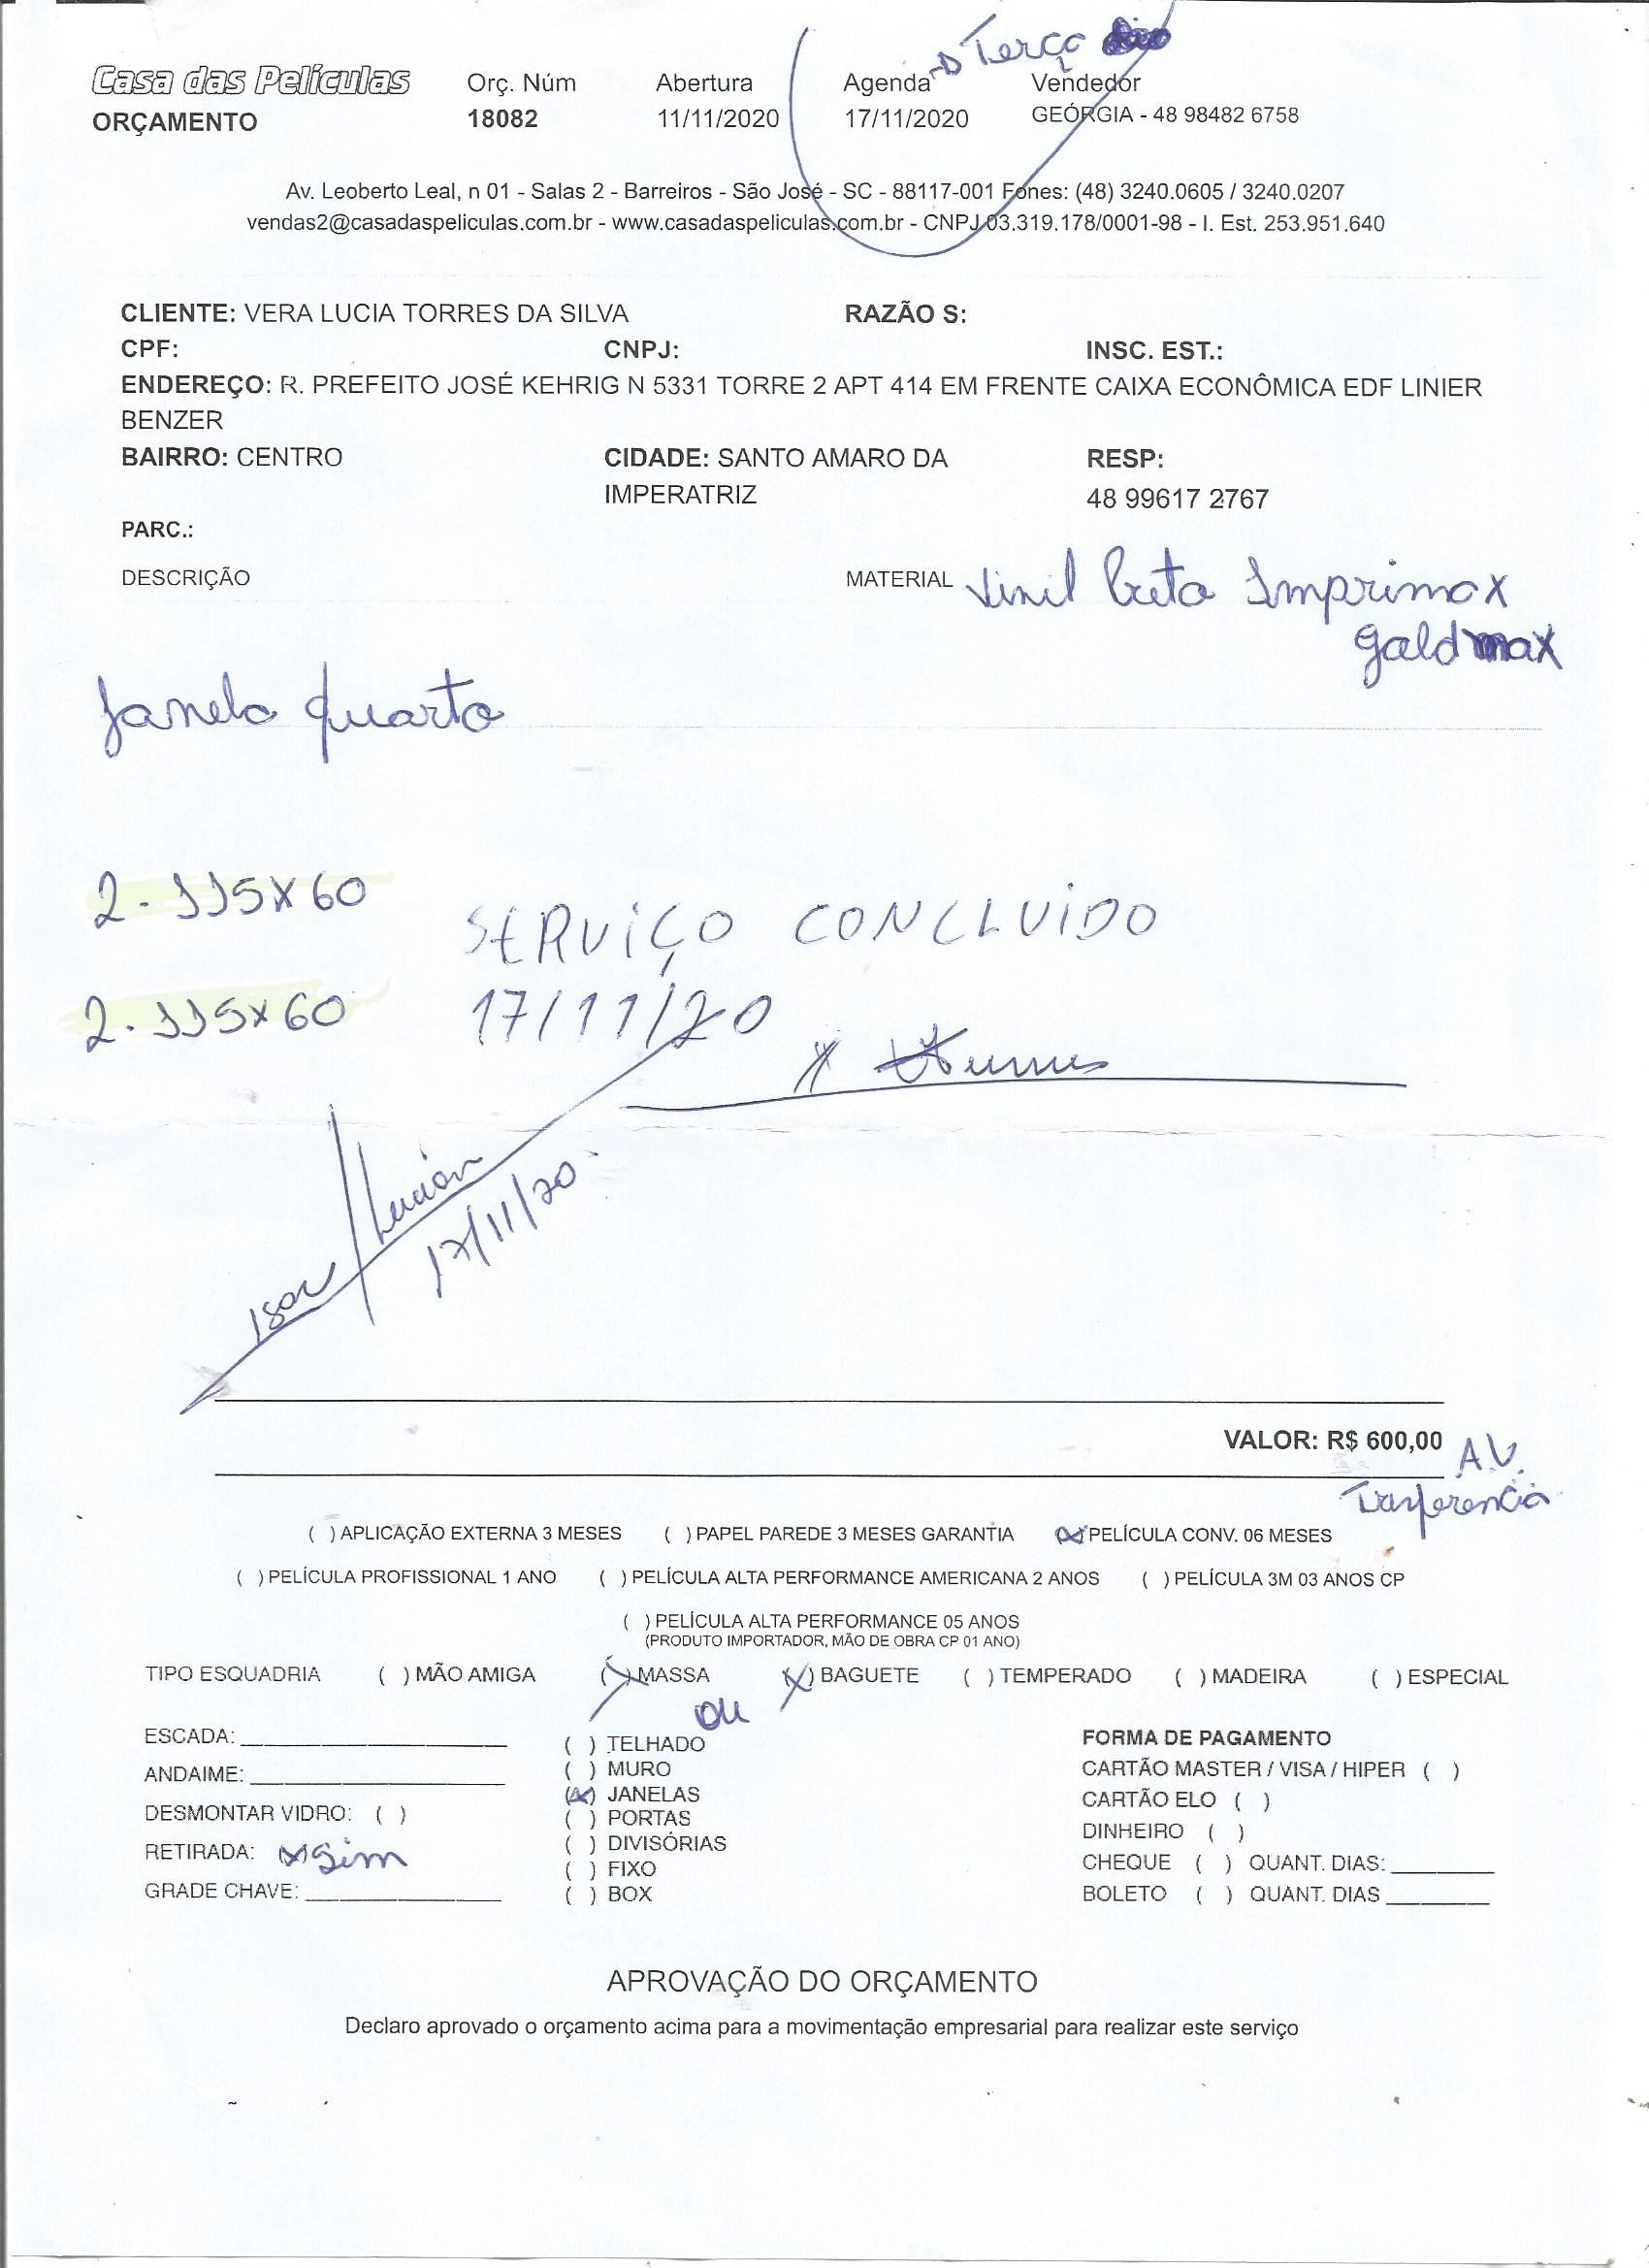 Terça
Casa das Películas Orç. Núm Abertura Agenda Vendedor
ORÇAMENTO 18082 11/11/2020 17/11/2020 GEÓRGIA - 48 98482 6758
Av. Leoberto Leal, n 01 - Salas 2 - Barreiros - São José - SC - 88117-001 Fones: (48) 3240.0605 / 3240.0207
vendas2@casadaspeliculas.com.br - www.casadaspeliculas.com.br - CNPJ 03.319.178/0001-98 - I. Est. 253.951.640
CLIENTE: VERA LUCIA TORRES DA SILVA RAZÃO S:
CPF: CNPJ: INSC. EST.:
ENDEREÇO: R. PREFEITO JOSÉ KEHRIG N 5331 TORRE 2 APT 414 EM FRENTE CAIXA ECONÔMICA EDF LINIER
BENZER
BAIRRO: CENTRO CIDADE: SANTO AMARO DA RESP:
IMPERATRIZ 48 99617 2767
PARC.:
DESCRIÇÃO MATERIAL Vinil Preto Imprimax
goldmax
Janela quarto
2. 115X60
SERVIÇO CONCLUIDO
2. 115X60 17/11/20
X
Isac / Lucian
17/11/20
VALOR: R$ 600,00 A.V.
Trasferencia
( ) APLICAÇÃO EXTERNA 3 MESES ( ) PAPEL PAREDE 3 MESES GARANTIA (X) PELÍCULA CONV. 06 MESES
( ) PELÍCULA PROFISSIONAL 1 ANO ( ) PELÍCULA ALTA PERFORMANCE AMERICANA 2 ANOS ( ) PELÍCULA 3M 03 ANOS CP
( ) PELÍCULA ALTA PERFORMANCE 05 ANOS
(PRODUTO IMPORTADOR, MÃO DE OBRA CP 01 ANO)
TIPO ESQUADRIA ( ) MÃO AMIGA (X) MASSA (X) BAGUETE ( ) TEMPERADO ( ) MADEIRA ( ) ESPECIAL
ou
ESCADA: ( ) TELHADO FORMA DE PAGAMENTO
ANDAIME: ( ) MURO CARTÃO MASTER / VISA / HIPER ( )
(X) JANELAS CARTÃO ELO ( )
DESMONTAR VIDRO: ( ) ( ) PORTAS DINHEIRO ( )
RETIRADA: (X) Sim ( ) DIVISÓRIAS CHEQUE ( ) QUANT. DIAS:
( ) FIXO
GRADE CHAVE: ( ) BOX BOLETO ( ) QUANT. DIAS
APROVAÇÃO DO ORÇAMENTO
Declaro aprovado o orçamento acima para a movimentação empresarial para realizar este serviço